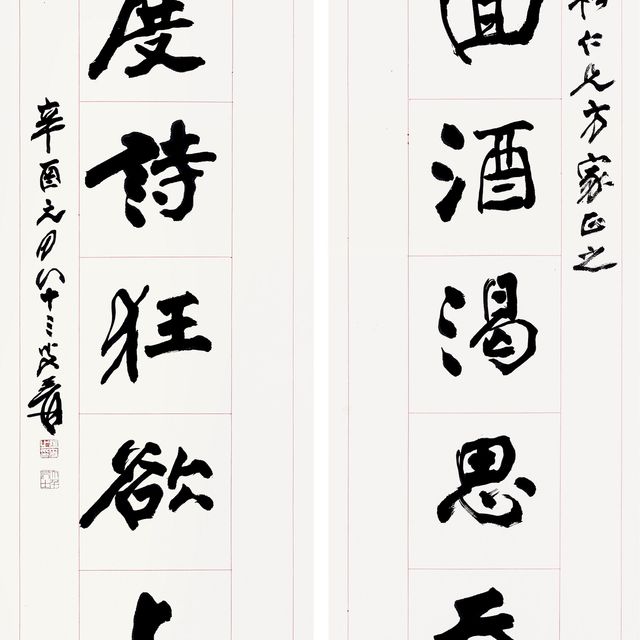 仁兄方家正之
回酒渴思
度詩狂欲
辛酉元月八十三叟爰